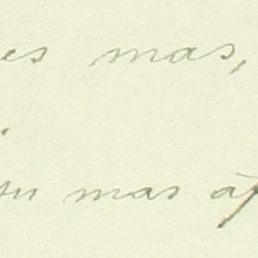 es mas,
su mas áp